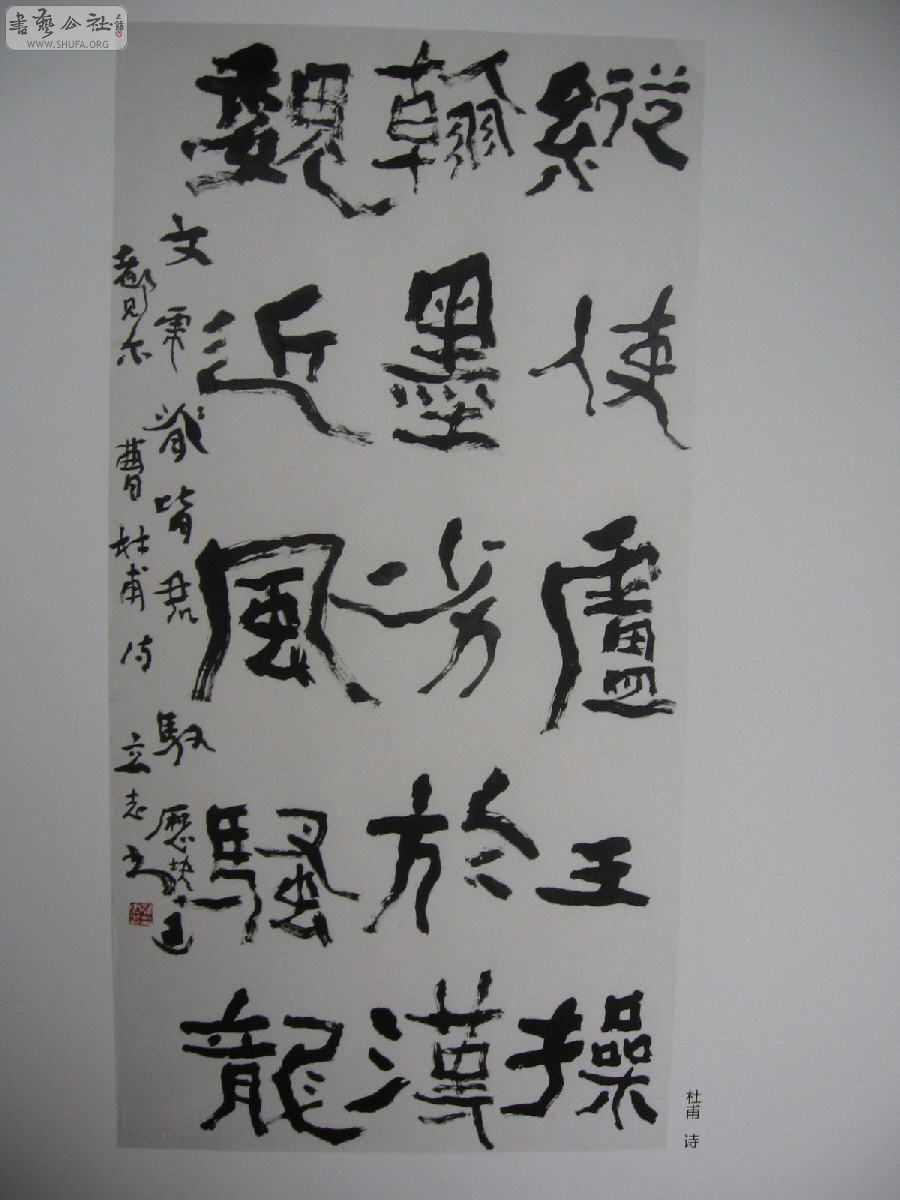 書藝公社
WWW.SHUFA.ORG
縱使盧王操
翰墨劣於漢
魏近風騷龍
文虎脊皆君馭歷塊過
都見尔曹 杜甫诗 立志书
杜甫 诗